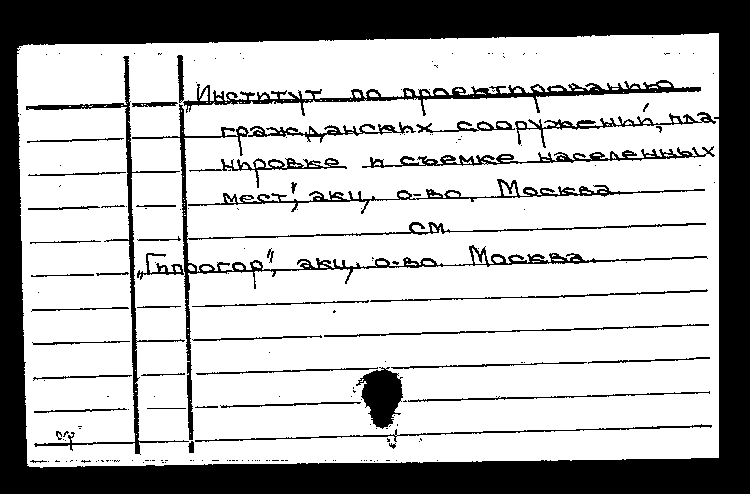 „Институт по проектированию
гражданских сооружений, пла-
нировке и съемке населенных
мест", акц. о-во. Москва.
см.
„Гипрогор", акц. о-во. Москва.